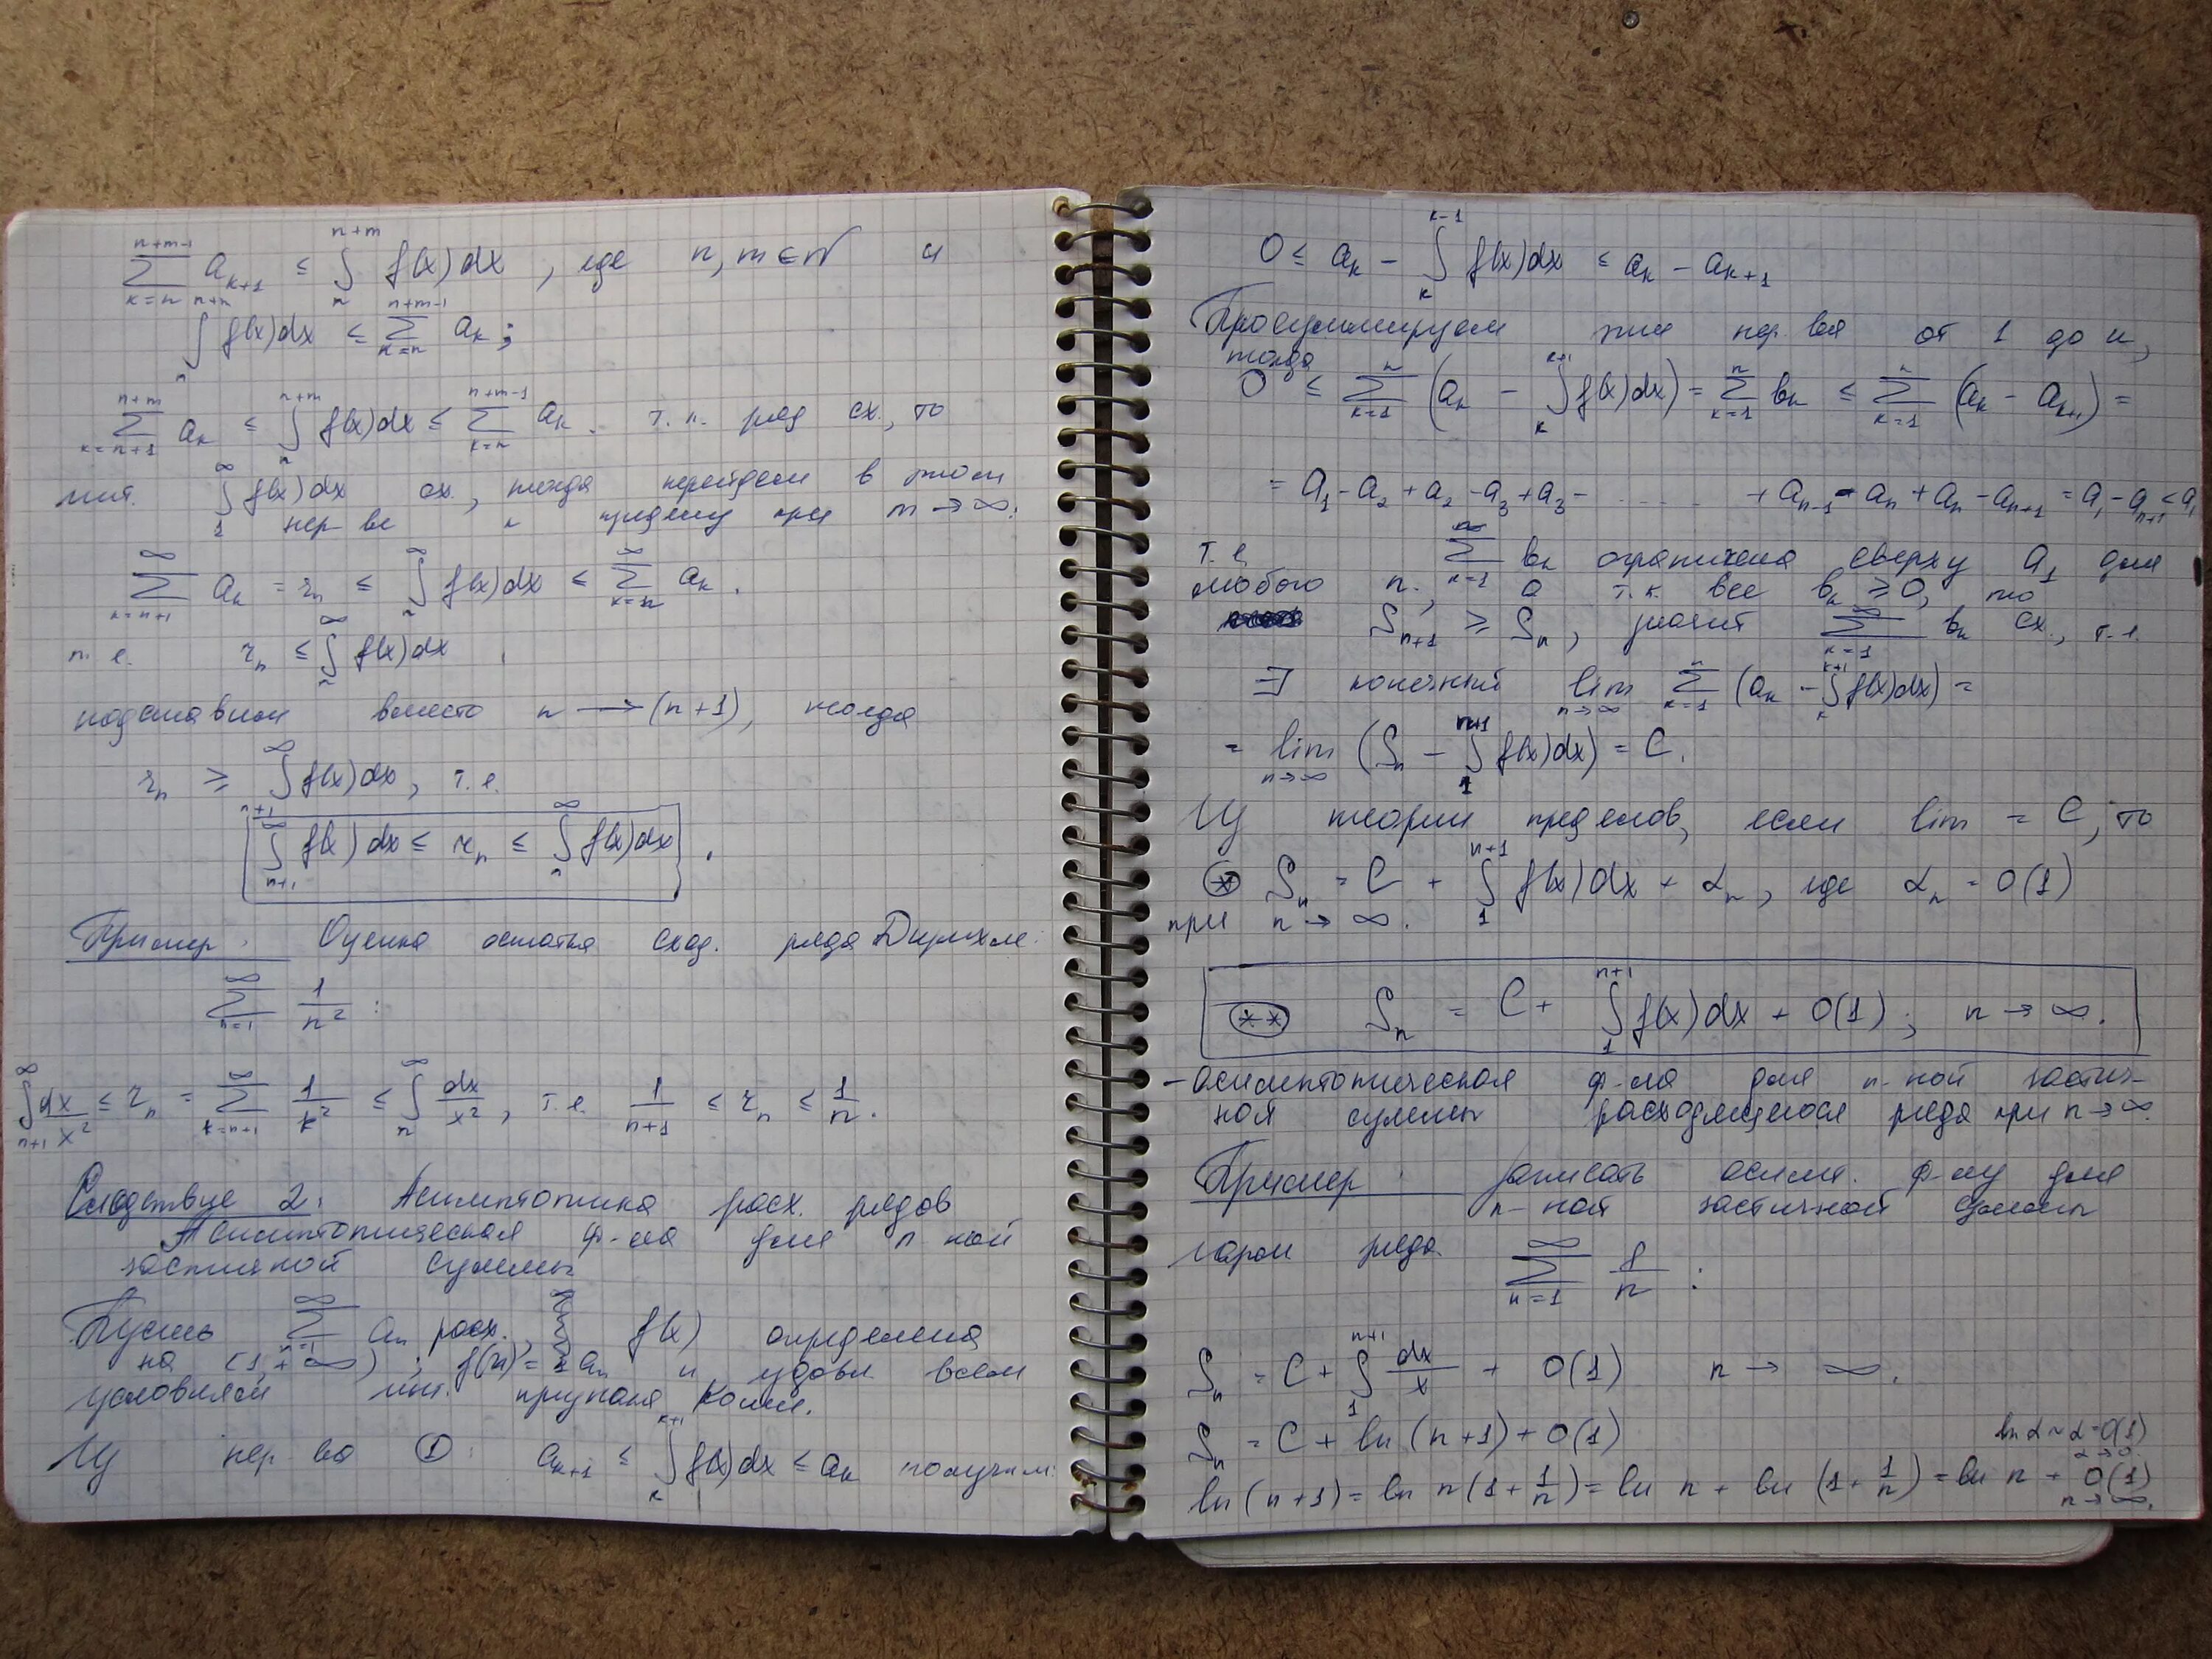 ∑_{k=n}^{n+m-1} a_{k+1} ≤ ∫_n^{n+m} f(x)dx, где n, m ∈ N и
∫_n^{n+m} f(x)dx ≤ ∑_{k=n}^{n+m-1} a_k;
∑_{k=n+1}^{n+m} a_k ≤ ∫_n^{n+m} f(x)dx ≤ ∑_{k=n}^{n+m-1} a_k. т.к. ряд сх., то
инт. ∫_1^∞ f(x)dx сх., тогда перейдем в этом
нер-ве к пределу при m → ∞:
∑_{k=n+1}^∞ a_k = r_n ≤ ∫_n^∞ f(x)dx ≤ ∑_{k=n}^∞ a_k.
т.е. r_n ≤ ∫_n^∞ f(x)dx
подставим вместо n → (n+1), тогда
r_n ≥ ∫_{n+1}^∞ f(x)dx, т.е.
∫_{n+1}^∞ f(x)dx ≤ r_n ≤ ∫_n^∞ f(x)dx.
Пример. Оценка остатка сход. ряда Дирихле:
∑_{n=1}^∞ 1/n²:
∫_{n+1}^∞ dx/x² ≤ r_n = ∑_{k=n+1}^∞ 1/k² ≤ ∫_n^∞ dx/x², т.е. 1/(n+1) ≤ r_n ≤ 1/n.
Следствие 2: Асимптотика расх. рядов
Асимптотическая ф-ла для n-ной
частичной суммы
Пусть ∑_{n=1}^∞ a_n расх., f(x) определена
на [1, +∞), f(n) = a_n и удовл. всем
условиям инт. признака Коши.
Из нер-ва ①: a_{k+1} ≤ ∫_k^{k+1} f(x)dx ≤ a_k получим:
0 ≤ a_k - ∫_k^{k-1} f(x)dx ≤ a_k - a_{k+1}
Просуммируем эти нер-ва от 1 до n,
тогда
0 ≤ ∑_{k=1}^n (a_k - ∫_k^{k+1} f(x)dx) = ∑_{k=1}^n b_k ≤ ∑_{k=1}^n (a_k - a_{k+1}) =
= a_1 - a_2 + a_2 - a_3 + a_3 - ..... + a_{n-1} - a_n + a_n - a_{n+1} = a_1 - a_{n+1} < a_1
т.е. ∑_{k=1}^n b_k ограничена сверху a_1 для
любого n., а т.к. все b_k ≥ 0, то
S_{n+1} ≥ S_n, значит ∑_{k=1}^∞ b_k сх., т.е.
∃ конечный lim_{n→∞} ∑_{k=1}^n (a_k - ∫_k^{k+1} f(x)dx) =
= lim_{n→∞} (S_n - ∫_1^{n+1} f(x)dx) = C.
Из теории пределов, если lim = C, то
(*) S_n = C + ∫_1^{n+1} f(x)dx + α_n, где α_n = o(1)
при n → ∞.
(**) S_n = C + ∫_1^{n+1} f(x)dx + o(1), n → ∞.
- асимптотическая ф-ла для n-ной частич-
ной суммы расходящегося ряда при n → ∞.
Пример. Записать асимпт. ф-лу для
n-ной частичной суммы
гарм ряда. ∑_{n=1}^∞ 1/n:
S_n = C + ∫_1^{n+1} dx/x + o(1) n → ∞.
S_n = C + ln(n+1) + o(1)
ln(n+1) = ln n(1 + 1/n) = ln n + ln(1 + 1/n) = ln n + o(1) n → ∞.